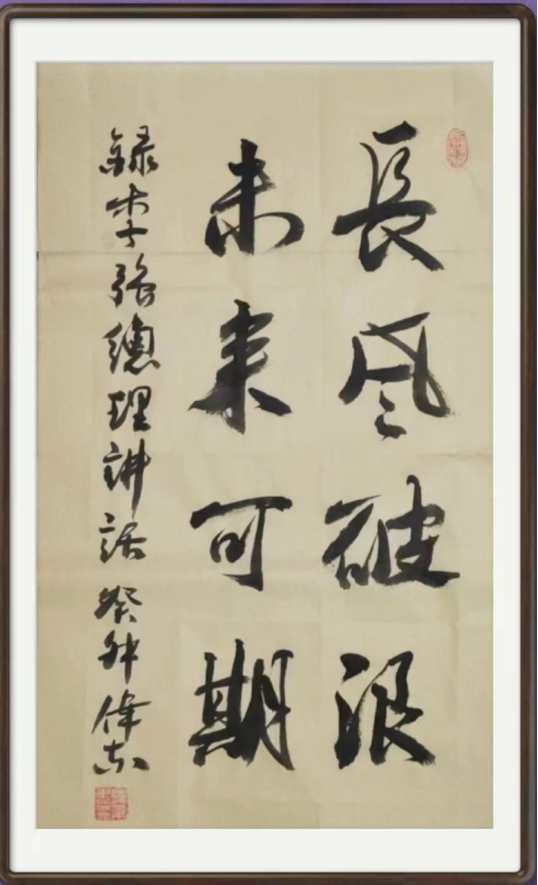 長風破浪
未来可期
録李強總理講話 癸卯 偉東